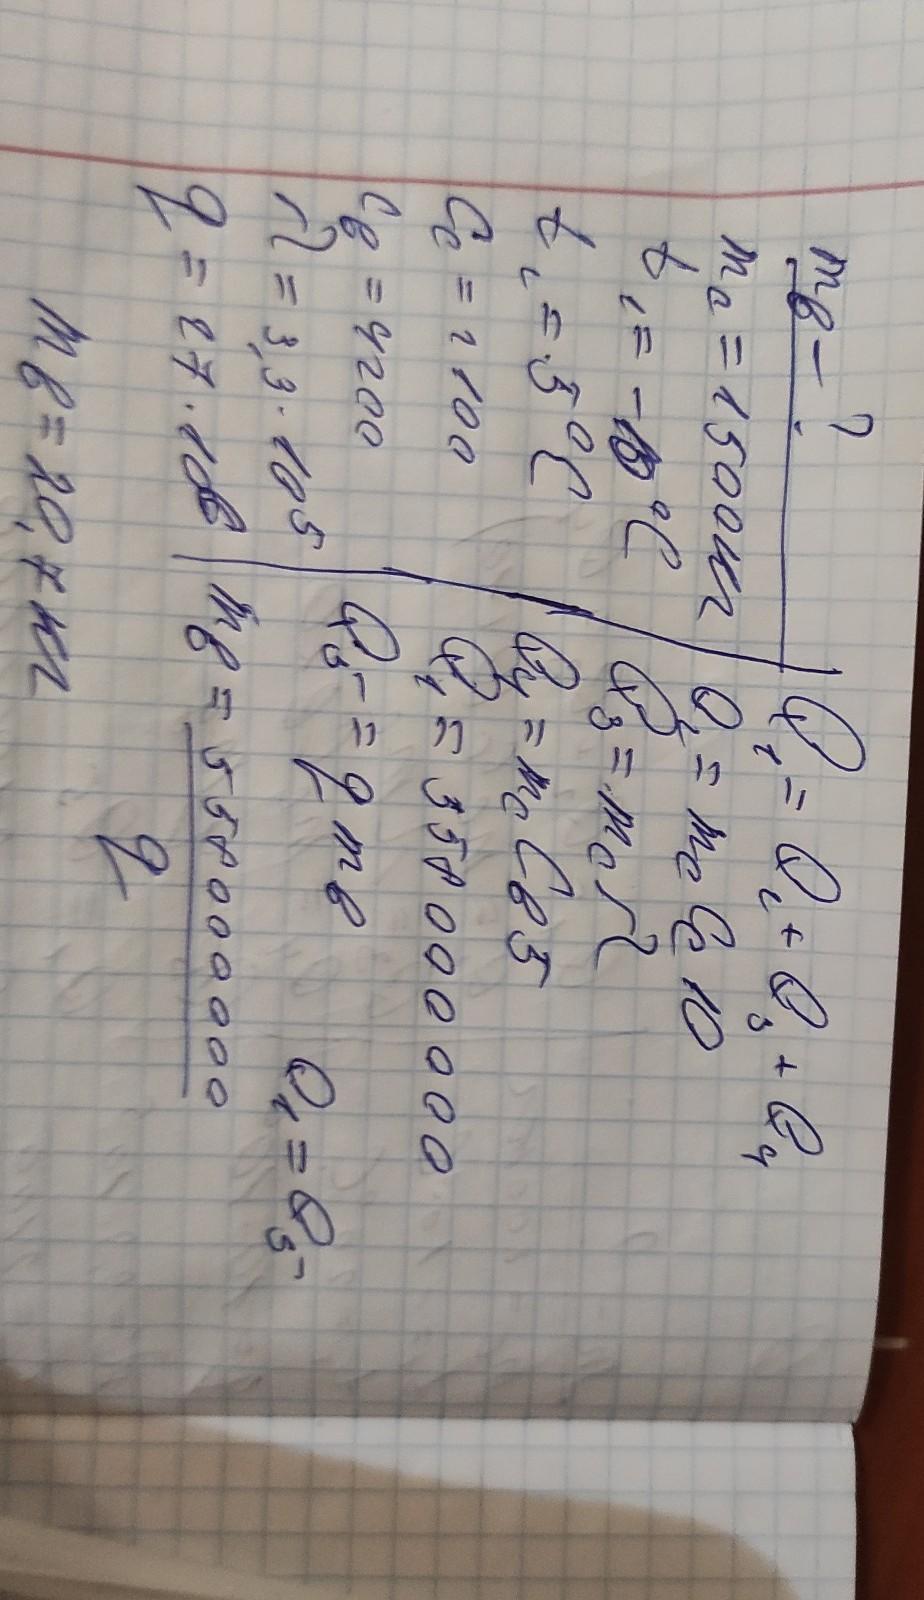 mв - ?
mс = 1500кг
t₁ = -10°C
t₂ = 5°C
Cс = 2100
Cв = 4200
λ = 3,3·10⁵
q = 27·10⁶
Q₁ = Q₂ + Q₃ + Q₄
Q₂ = mс Cс 10
Q₃ = mс λ
Q₄ = mс Cв 5
Q₁ = 558000000
Q₅ = q mв Q₁ = Q₅
mв = 558000000
q
mв = 20,7 кг